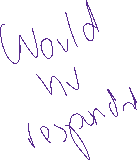 World
hv
respondd